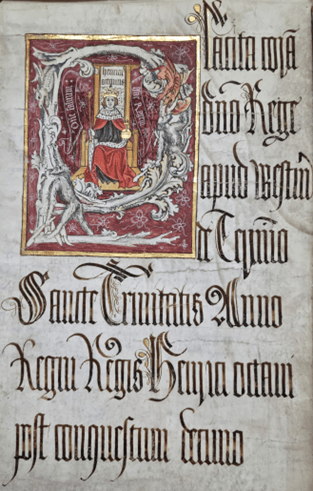 lacita corā
dno Rege
apud westm̄
de Termīo
Sancte Trinitatis Anno
Regni Regis Henrici octavi
post conquestum decimo